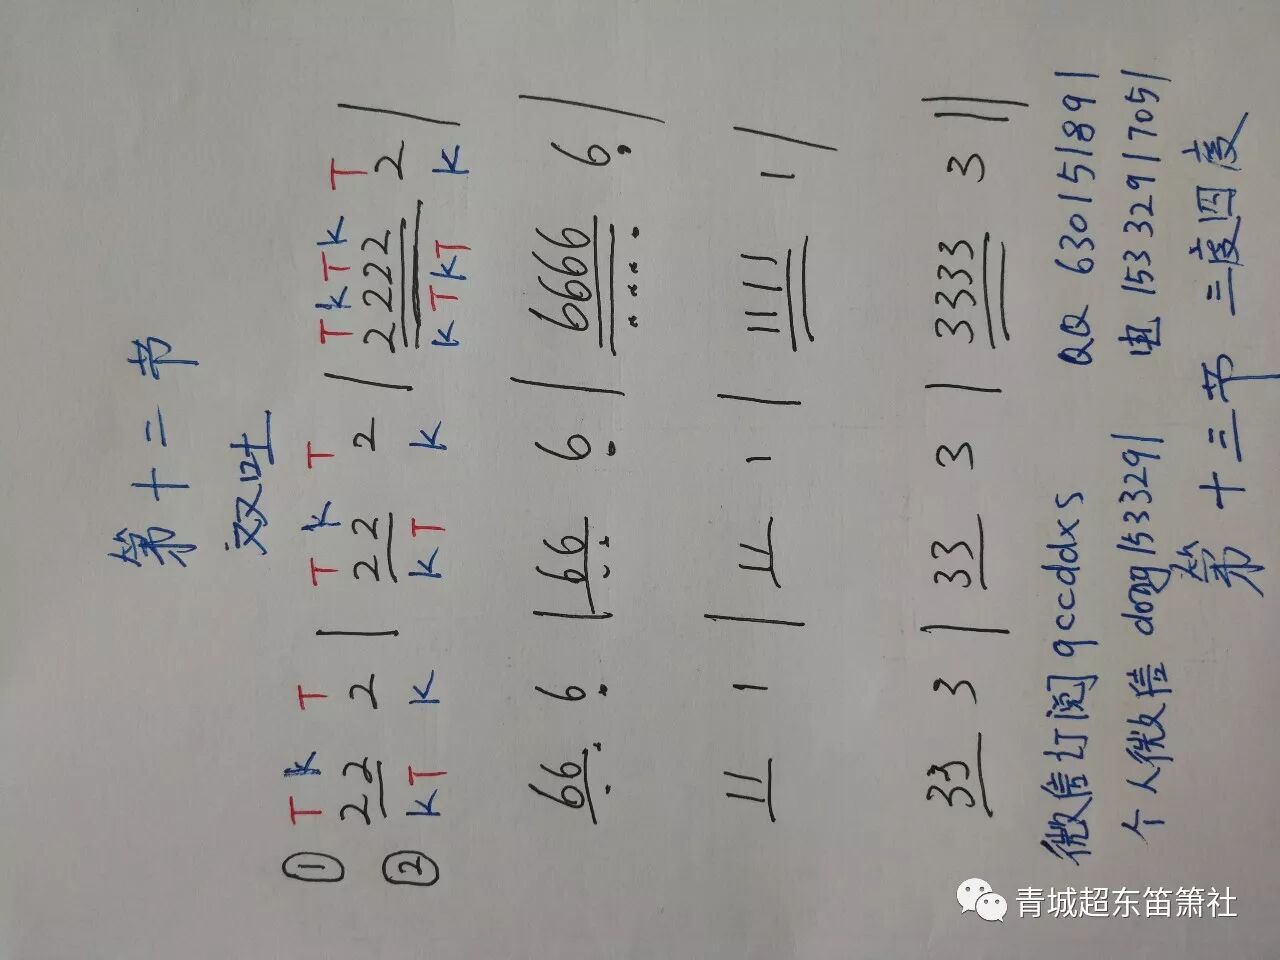 第十二节
双吐
① T K T T K T T K T K T
2 2 2 | 2 2 2 | 2 2 2 2 2 |
② K T K K T K K T K T K
6 6 6 | 6 6 6 | 6 6 6 6 6 |
1 1 1 | 1 1 1 | 1 1 1 1 1 |
3 3 3 | 3 3 3 | 3 3 3 3 3 ||
微信订阅 qccddxs QQ 630151891
个人微信 dong1533291 电 15332917051
第十三节 三度四度
青城超东笛箫社